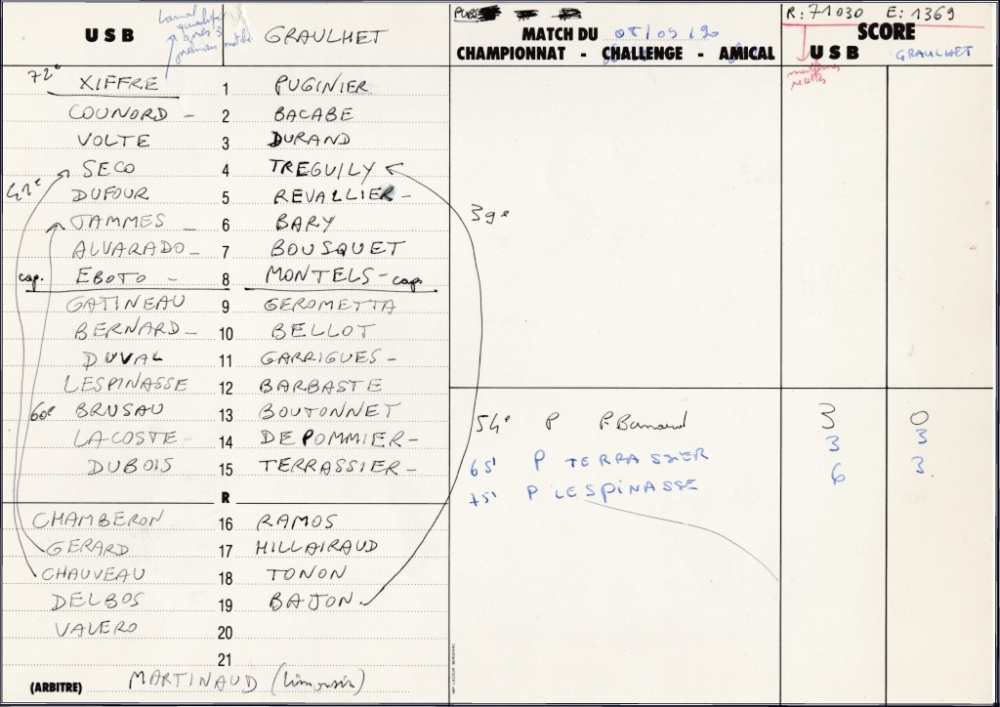 USB GRAULHET
MATCH DU 08/09/90
CHAMPIONNAT - CHALLENGE - AMICAL
R: 71030 E: 1369
SCORE
USB GRAULHET
72e XIFFRE 1 PUGINIER
COUNORD - 2 BACABE
VOLTE 3 DURAND
SECO 4 TREGUILY
41e DUFOUR 5 REVALLIER -
39e
JAMMES - 6 BARY
ALVARADO - 7 BOUSQUET
cap. EBOTO - 8 MONTELS - cap.
GATINEAU 9 GEROMETTA
BERNARD - 10 BELLOT
DUVAL 11 GARRIGUES -
LESPINASSE 12 BARBASTE
60e BRUSAU 13 BOUTONNET
LACOSTE - 14 DE POMMIER -
DUBOIS 15 TERRASSIER -
54e P P Bernard 3 0
65' P TERRASSIER 3 3
75' P LESPINASSE 6 3
R
CHAMBERON 16 RAMOS
GERARD 17 HILLAIRAUD
CHAUVEAU 18 TONON
DELBOS 19 BAJON
VALERO 20
21
(ARBITRE) MARTINAUD (Limousin)